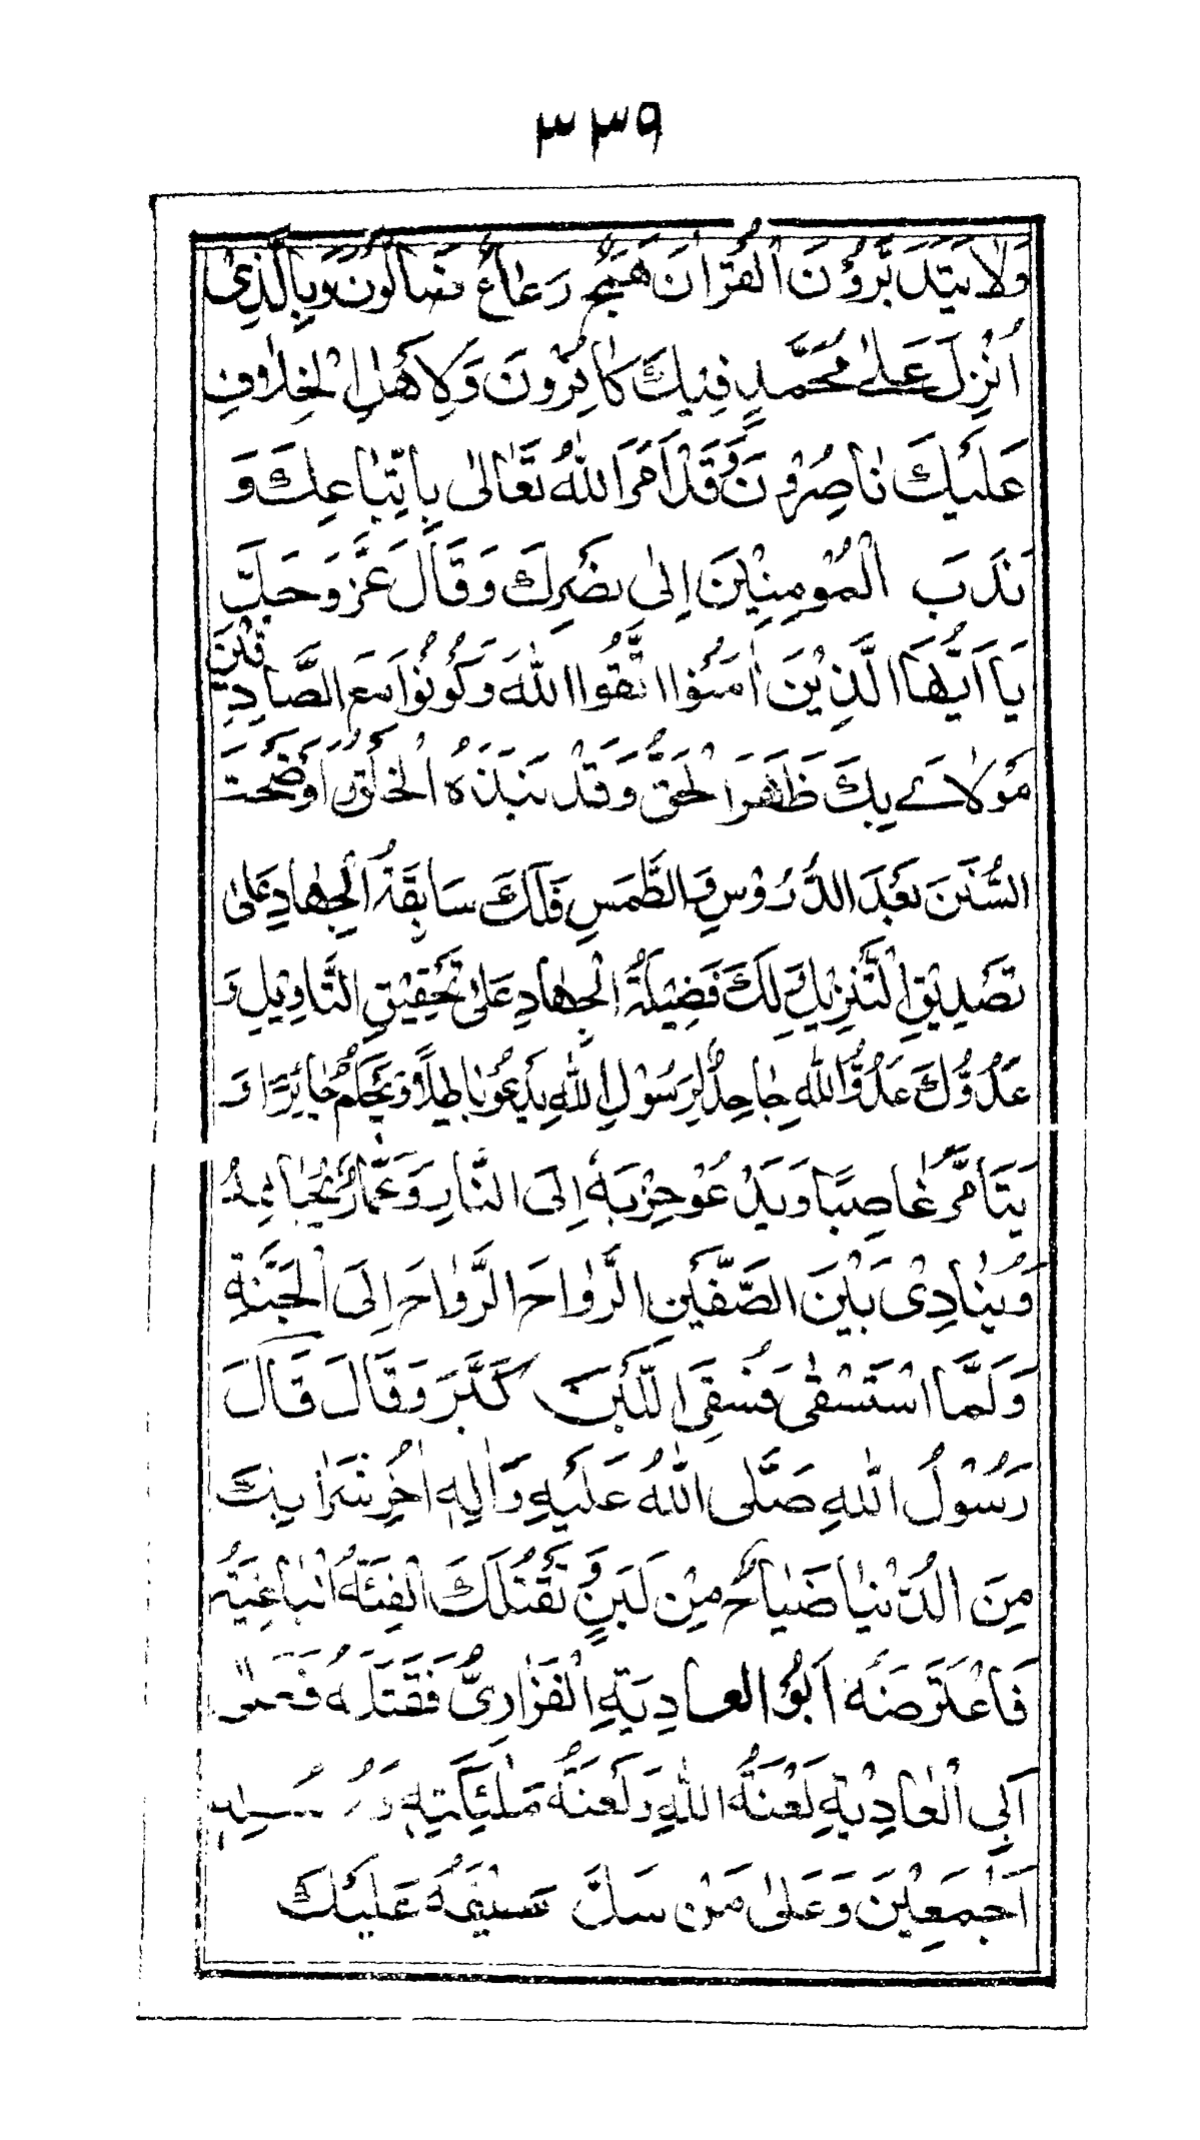 ۳۳۹
وَلَا يَتَدَبَّرُوْنَ الْقُرْاٰنَ هَمَجٌ رَعَاعٌ ضَآلُّوْنَ وَبِالَّذِىْ
اُنْزِلَ عَلٰى مُحَمَّدٍ فِيْكَ كَافِرُوْنَ وَلِاَهْلِ الْخِلَافِ
عَلَيْكَ نَاصِرُوْنَ وَقَدْ اَمَرَ اللّٰهُ تَعَالٰى بِاتِّبَاعِكَ وَ
نَدَبَ الْمُوْمِنِيْنَ اِلٰى نَصْرِكَ وَقَالَ عَزَّ وَجَلَّ
يَا اَيُّهَا الَّذِيْنَ اٰمَنُوْا اتَّقُوا اللّٰهَ وَكُوْنُوْا مَعَ الصَّادِقِيْنَ
مَوْلَاىَ بِكَ ظَهَرَ الْحَقُّ وَقَدْ نَبَذَهُ الْخَلْقُ وَاَوْضَحْتَ
السُّنَنَ بَعْدَ الدُّرُوْسِ وَالطَّمْسِ فَلَكَ سَابِقَةُ الْجِهَادِ عَلٰى
تَصْدِيْقِ التَّنْزِيْلِ وَلَكَ فَضِيْلَةُ الْجِهَادِ عَلٰى تَحْقِيْقِ التَّاوِيْلِ وَ
عَدُوُّكَ عَدُوُّ اللّٰهِ جَاحِدٌ لِرَسُوْلِ اللّٰهِ يَدْعُوْ بَاطِلًا وَيَحْكُمُ جَائِرًا وَ
يَتَاَمَّرُ غَاصِبًا وَيَدْعُوْ حِزْبَهٗ اِلَى النَّارِ وَعَمَّارٌ يُجَاهِدُ
وَيُنَادِىْ بَيْنَ الصَّفَّيْنِ الرَّوَاحَ الرَّوَاحَ اِلَى الْجَنَّةِ
وَلَمَّا اسْتَسْقٰى فَسُقِىَ اللَّبَنَ كَبَّرَ وَقَالَ قَالَ
رَسُوْلُ اللّٰهِ صَلَّى اللّٰهُ عَلَيْهِ وَاٰلِهٖ اٰخِرُ شَرَابِكَ
مِنَ الدُّنْيَا ضَيَاحٌ مِنْ لَبَنٍ وَتَقْتُلُكَ الْفِئَةُ الْبَاغِيَةُ
فَاعْتَرَضَهٗ اَبُو الْعَادِيَةِ الْفَزَارِىُّ فَقَتَلَهٗ فَعَلٰى
اَبِى الْعَادِيَةِ لَعْنَةُ اللّٰهِ وَلَعْنَةُ مَلٰئِكَتِهٖ وَرُسُلِهٖ
اَجْمَعِيْنَ وَعَلٰى مَنْ سَلَّ سَيْفَهٗ عَلَيْكَ